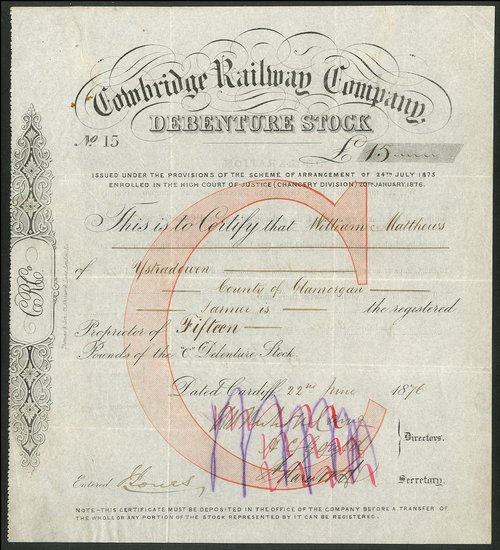 Cowbridge Railway Company.
DEBENTURE STOCK
No 15
£ 15
ISSUED UNDER THE PROVISIONS OF THE SCHEME OF ARRANGEMENT OF 24TH JULY 1875
ENROLLED IN THE HIGH COURT OF JUSTICE (CHANCERY DIVISION) 20TH JANUARY, 1876.
This is to Certify that William Matthews
of Ystradowen
County of Glamorgan
Farmer is the registered
Proprietor of Fifteen
Pounds of the "C" Debenture Stock.
Dated Cardiff 22nd June 1876
Directors.
Entered Jones, Secretary.
NOTE - THIS CERTIFICATE MUST BE DEPOSITED IN THE OFFICE OF THE COMPANY BEFORE A TRANSFER OF
THE WHOLE OR ANY PORTION OF THE STOCK REPRESENTED BY IT CAN BE REGISTERED.
C